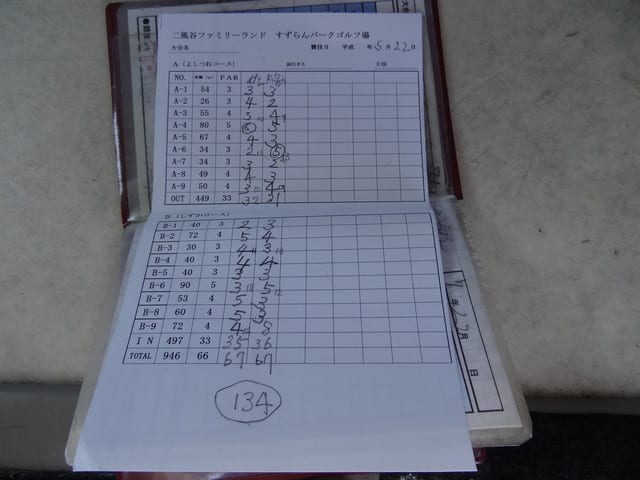 二風谷ファミリーランド すずらんパークゴルフ場
大会名 競技日 平成 年 5月 22日
A (よしつねコース) 競技者名 大様
NO. 距離(m) PAR
A-1 54 3 3 3
A-2 26 3 4 2
A-3 55 4 3 4
A-4 80 5 6 5
A-5 67 4 4 3
A-6 34 3 2 5
A-7 34 3 3 2
A-8 49 4 4 3
A-9 50 4 3 4
OUT 449 33 32 31
B (しずかコース)
B-1 40 3 2 3
B-2 72 4 5 4
B-3 30 3 4 3
B-4 40 3 4 4
B-5 40 3 3 3
B-6 90 5 3 5
B-7 53 4 5 3
B-8 60 4 5 3
B-9 72 4 4 8
IN 497 33 35 36
TOTAL 946 66 67 67
134